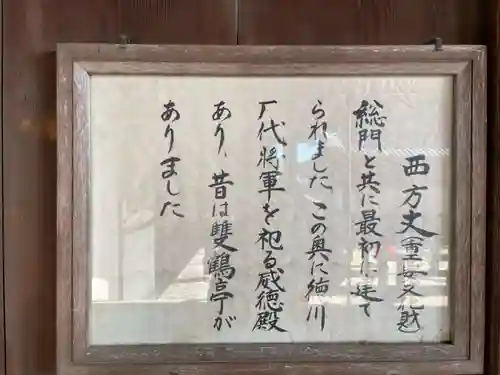 西方丈 重要文化財
総門と共に最初に建て
られました。この奥に徳川
厂代將軍を祀る威徳殿
あり、昔は雙鶴亭が
ありました